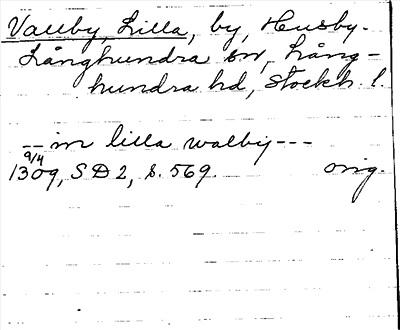 Vallby, Lilla, by, Husby-
Långhundra sn, Lång-
hundra hd, Stockh. l.
-- in lilla walby ---
9/4
1309, SD2, s. 569. orig.